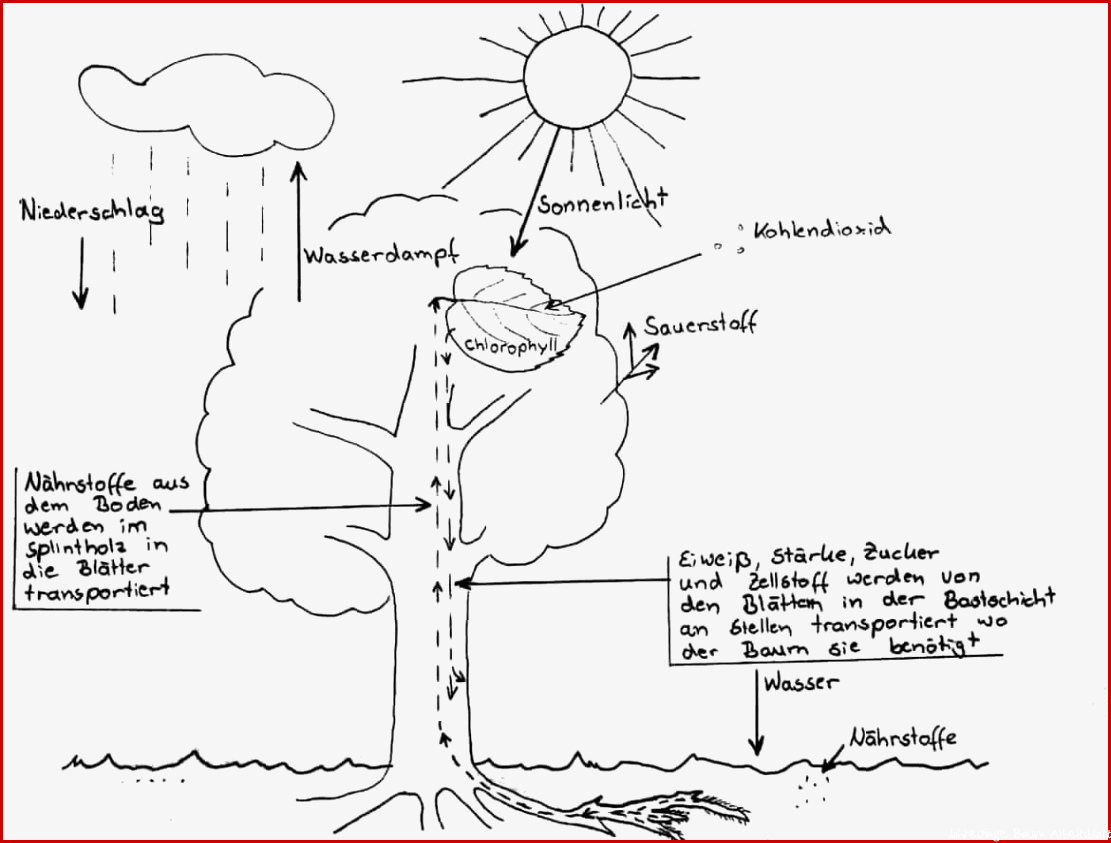 Niederschlag
Wasserdampf
Sonnenlicht
Kohlendioxid
Sauerstoff
Chlorophyll
Nährstoffe aus
dem Boden
werden im
Splintholz in
die Blätter
transportiert
Eiweiß, Stärke, Zucker
und Zellstoff werden von
den Blättern in der Bastschicht
an Stellen transportiert wo
der Baum sie benötigt
Wasser
Nährstoffe